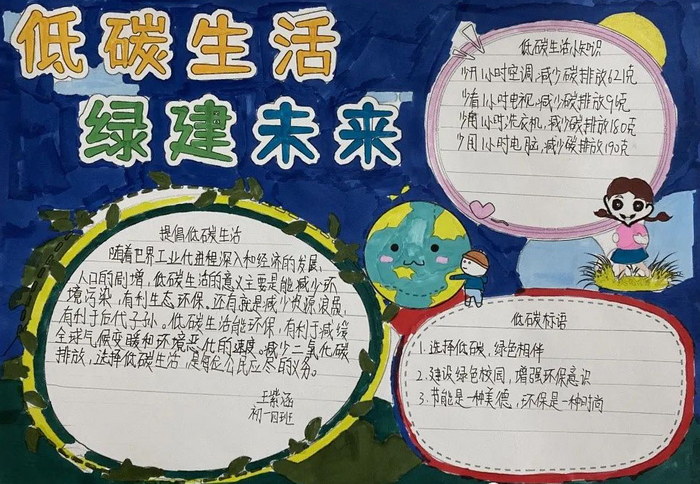 低碳生活
绿建未来
低碳生活小知识
少开1小时空调,减少碳排放621克
少看1小时电视,减少碳排放96克
少用1小时洗衣机,减少碳排放180克
少用1小时电脑,减少碳排放190克
提倡低碳生活
随着世界工业化进程深入和经济的发展,
人口的剧增,低碳生活的意义主要是能减少环
境污染,有利生态环保,还有就是减少资源浪费,
有利于后代子孙。低碳生活能环保,有利于减缓
全球气候变暖和环境恶化的速度。减少二氧化碳
排放,选择低碳生活,是每位公民应尽的义务。
王紫涵
初一四班
低碳标语
1.选择低碳,绿色相伴
2.建设绿色校园,增强环保意识
3.节能是一种美德,环保是一种时尚